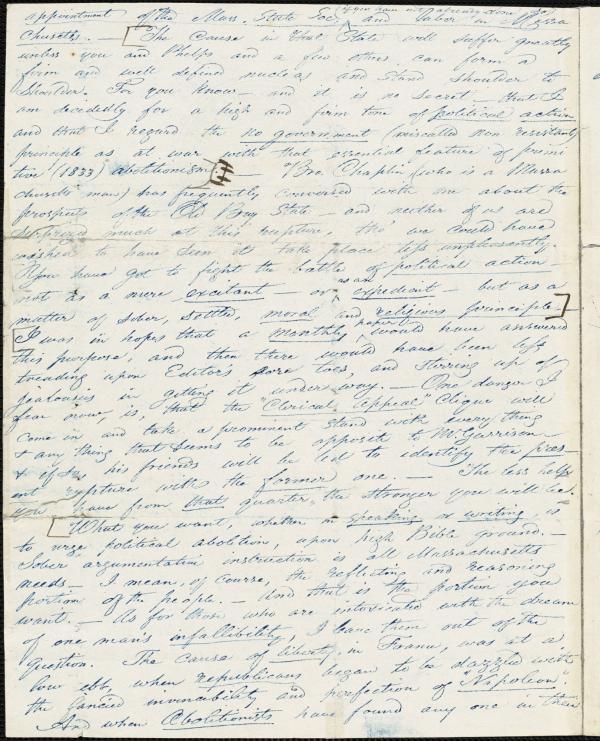 (if you have not already done it)
appointment of the Mass. State Soc. and labor in Massa
chusetts. — [The Cause in that State will suffer greatly
unless you and Phelps and a few others can form a
firm and well defined nucleus and stand shoulder to
shoulder. For you know — and it is no secret — that I
am decidedly for a high and firm tone of political action
and that I regard the no government (miscalled non resistant)
principle as at war with that essential feature of primi
tive (1833) abolitionism. — "Bro. Chaplin (who is a Massa
chusetts man) has frequently conversed with me about the
prospects of the Old Bay State — and neither of us are
surprized much at this rupture, tho' we could have
wished to have seen it take place less unpleasantly.
You have got to fight the battle of political action
not as a mere excitant or as an expedient — but as a
matter of sober, settled, moral and religious principle.]—
[I was in hopes that a monthly paper would have answered
this purpose, and then there would have been less
treading upon Editor's sore toes, and stirring up of
jealousies in getting it under way. — One danger I
fear now, is, that the "Clerical appeal" Clique will
come in and take a prominent stand with everything
& any thing that seems to be opposed to Mr. Garrison —
& if so his friends will be led to identify the pres-
ent rupture with the former one. — The less help
you have from that quarter, the stronger you will be.
[What you want, whether in speaking or writing, is
to urge political abolition, upon high Bible ground. —
Sober argumentative instruction is all Massachusetts
needs — I mean, of course, the reflecting and reasoning
portion of the people. — And that is the portion you
want. — As for those who are intoxicated with the dream
of one man's infallibility, I leave them out of the
question. The cause of liberty, in France, was at a
low ebb, when republicans began to be dazzled with
the fancied invincibility and perfection of "Napoleon".
And when Abolitionists have found any one in their